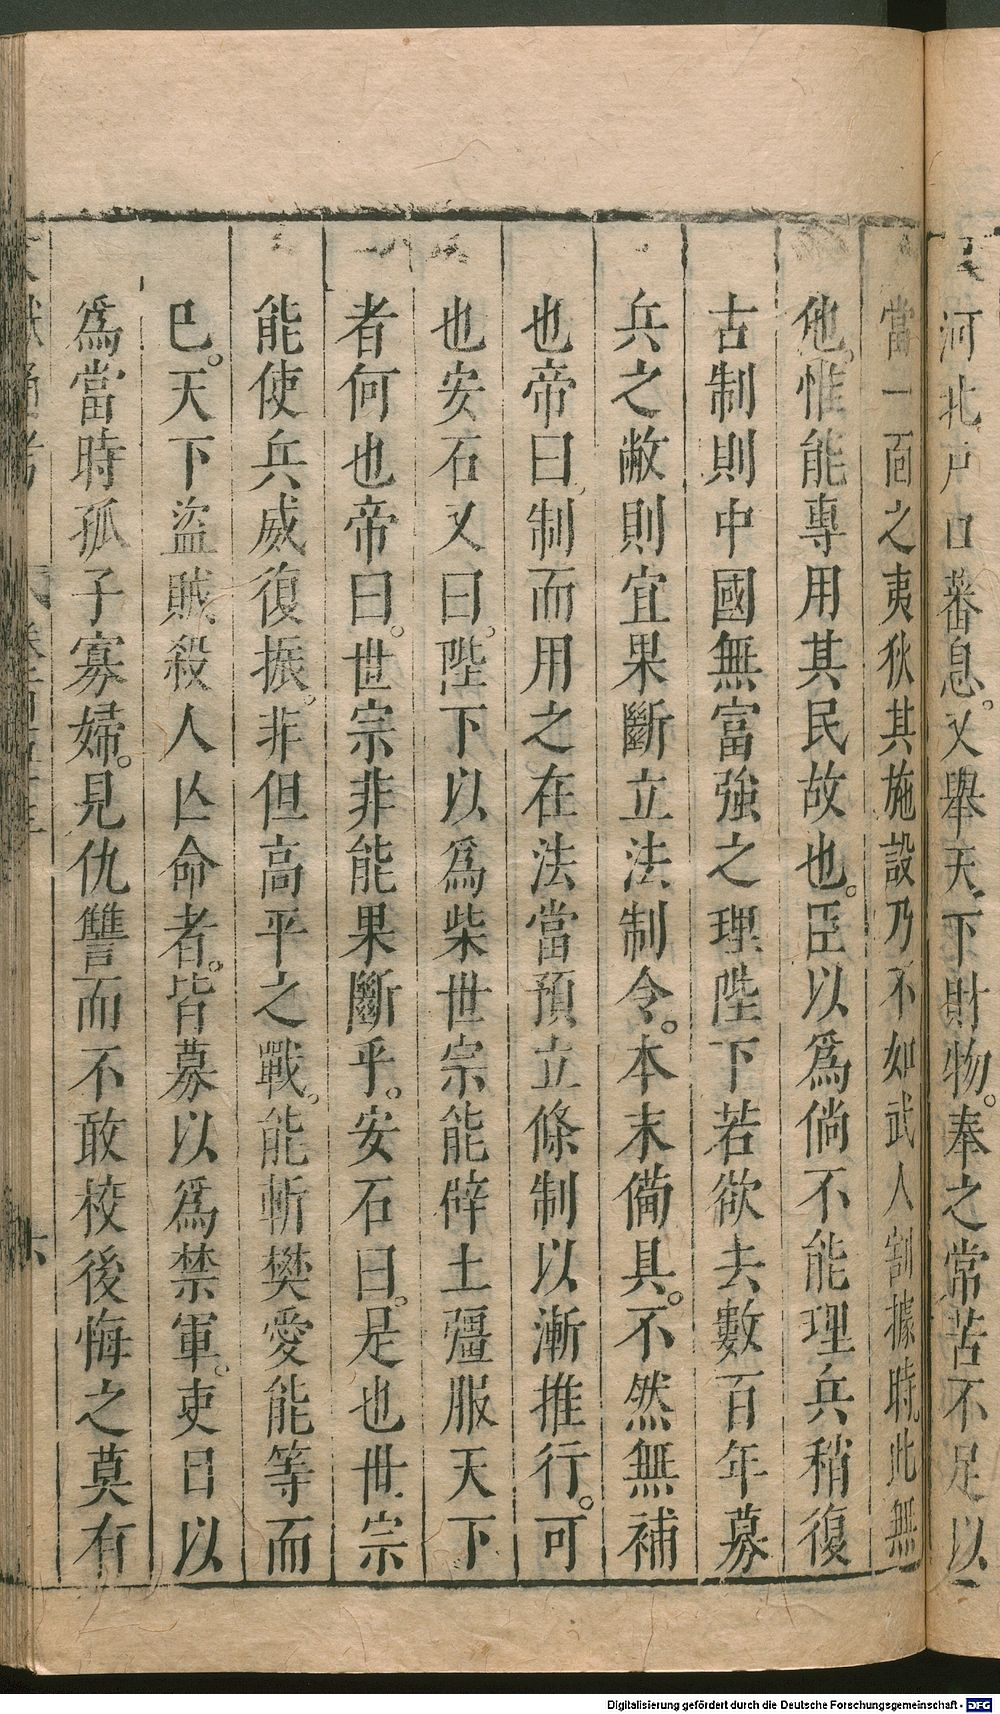 河北戶口蕃息。又舉天下財物。奉之常苦不足以
當一面之夷狄其施設乃不如武人割據時此無
他。惟能專用其民故也。臣以爲倘不能理兵稍復
古制則中國無富強之理陛下若欲去數百年募
兵之敝則宜果斷立法制令。本末備具。不然無補
也帝曰制而用之在法當預立條制以漸推行。可
也安石又曰。陛下以爲柴世宗能闢土彊服天下
者何也帝曰。世宗非能果斷乎。安石曰。是也世宗
能使兵威復振。非但高平之戰。能斬樊愛能等而
巳。天下盜賊殺人亡命者。皆募以爲禁軍。吏日以
爲當時孤子寡婦。見仇讐而不敢校後悔之莫有
六
Digitalisierung gefördert durch die Deutsche Forschungsgemeinschaft - DFG